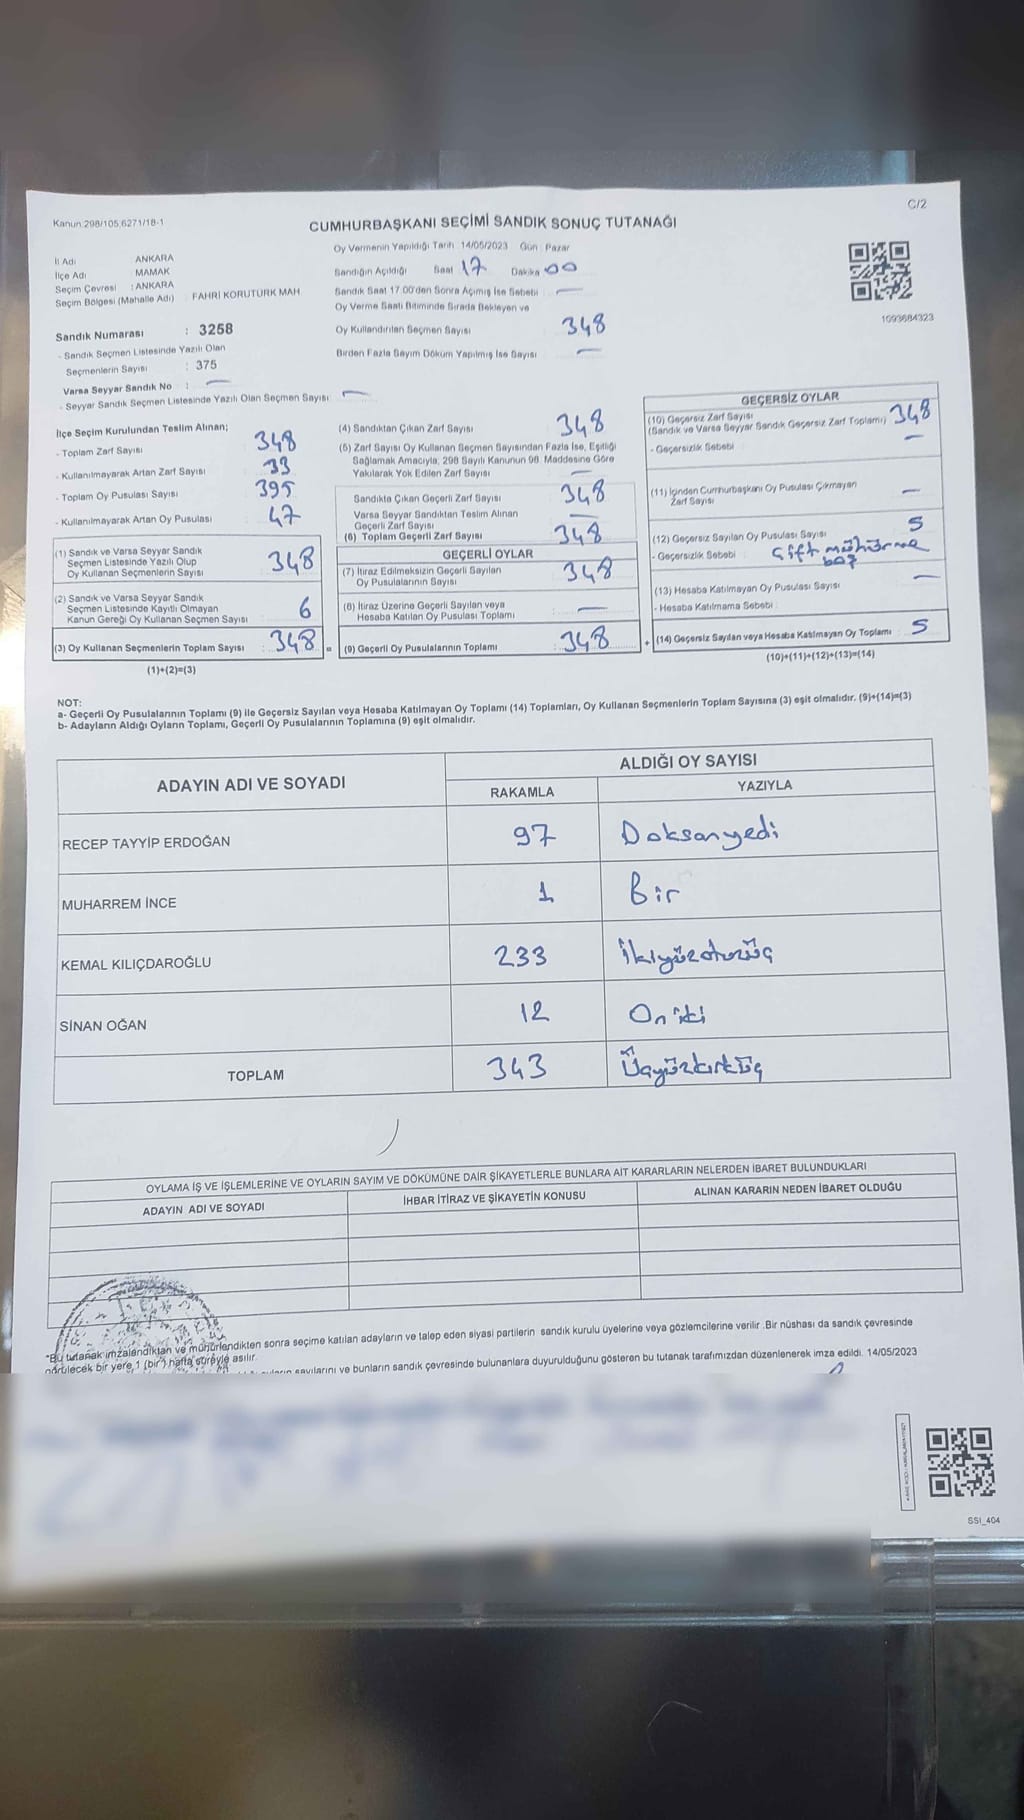 Kanun:298/105,6271/18-1
C/2
CUMHURBAŞKANI SEÇİMİ SANDIK SONUÇ TUTANAĞI
İl Adı ANKARA
İlçe Adı MAMAK
Seçim Çevresi : ANKARA
Seçim Bölgesi (Mahalle Adı) : FAHRİ KORUTÜRK MAH
Sandık Numarası : 3258
- Sandık Seçmen Listesinde Yazılı Olan
Seçmenlerin Sayısı : 375
Varsa Seyyar Sandık No : —
- Seyyar Sandık Seçmen Listesinde Yazılı Olan Seçmen Sayısı —
Oy Vermenin Yapıldığı Tarih :14/05/2023 Gün : Pazar
Sandığın Açıldığı Saat 17 Dakika 00
Sandık Saat 17.00'den Sonra Açılmış İse Sebebi —
Oy Verme Saati Bitiminde Sırada Bekleyen ve
Oy Kullandırılan Seçmen Sayısı 348
Birden Fazla Sayım Döküm Yapılmış İse Sayısı —
1093684323
İlçe Seçim Kurulundan Teslim Alınan;
- Toplam Zarf Sayısı 348
- Kullanılmayarak Artan Zarf Sayısı 33
- Toplam Oy Pusulası Sayısı 395
- Kullanılmayarak Artan Oy Pusulası 47
(1) Sandık ve Varsa Seyyar Sandık
Seçmen Listesinde Yazılı Olup
Oy Kullanan Seçmenlerin Sayısı 348
(2) Sandık ve Varsa Seyyar Sandık
Seçmen Listesinde Kayıtlı Olmayan
Kanun Gereği Oy Kullanan Seçmen Sayısı 6
(3) Oy Kullanan Seçmenlerin Toplam Sayısı 348 =
(1)+(2)=(3)
(4) Sandıktan Çıkan Zarf Sayısı 348
(5) Zarf Sayısı Oy Kullanan Seçmen Sayısından Fazla İse, Eşitliği
Sağlamak Amacıyla, 298 Sayılı Kanunun 98. Maddesine Göre
Yakılarak Yok Edilen Zarf Sayısı —
Sandıkta Çıkan Geçerli Zarf Sayısı 348
Varsa Seyyar Sandıktan Teslim Alınan
Geçerli Zarf Sayısı —
(6) Toplam Geçerli Zarf Sayısı 348
GEÇERLİ OYLAR
(7) İtiraz Edilmeksizin Geçerli Sayılan
Oy Pusulalarının Sayısı 348
(8) İtiraz Üzerine Geçerli Sayılan veya
Hesaba Katılan Oy Pusulası Toplamı —
(9) Geçerli Oy Pusulalarının Toplamı 348 +
GEÇERSİZ OYLAR
(10) Geçersiz Zarf Sayısı
(Sandık ve Varsa Seyyar Sandık Geçersiz Zarf Toplamı) 348
- Geçersizlik Sebebi —
(11) İçinden Cumhurbaşkanı Oy Pusulası Çıkmayan
Zarf Sayısı —
(12) Geçersiz Sayılan Oy Pusulası Sayısı 5
- Geçersizlik Sebebi : Çift mühürme
boş
(13) Hesaba Katılmayan Oy Pusulası Sayısı —
- Hesaba Katılmama Sebebi :
(14) Geçersiz Sayılan veya Hesaba Katılmayan Oy Toplamı 5
(10)+(11)+(12)+(13)=(14)
NOT:
a- Geçerli Oy Pusulalarının Toplamı (9) ile Geçersiz Sayılan veya Hesaba Katılmayan Oy Toplamı (14) Toplamları, Oy Kullanan Seçmenlerin Toplam Sayısına (3) eşit olmalıdır. (9)+(14)=(3)
b- Adayların Aldığı Oyların Toplamı, Geçerli Oy Pusulalarının Toplamına (9) eşit olmalıdır.
ADAYIN ADI VE SOYADI
ALDIĞI OY SAYISI
RAKAMLA YAZIYLA
RECEP TAYYİP ERDOĞAN 97 Doksanyedi
MUHARREM İNCE 1 Bir
KEMAL KILIÇDAROĞLU 233 İkiyüzotuzüç
SİNAN OĞAN 12 On iki
TOPLAM 343 Üçyüzkırküç
OYLAMA İŞ VE İŞLEMLERİNE VE OYLARIN SAYIM VE DÖKÜMÜNE DAİR ŞİKAYETLERLE BUNLARA AİT KARARLARIN NELERDEN İBARET BULUNDUKLARI
ADAYIN ADI VE SOYADI İHBAR İTİRAZ VE ŞİKAYETİN KONUSU ALINAN KARARIN NEDEN İBARET OLDUĞU
*Bu tutanak imzalandıktan ve mühürlendikten sonra seçime katılan adayların ve talep eden siyasi partilerin sandık kurulu üyelerine veya gözlemcilerine verilir .Bir nüshası da sandık çevresinde
görülecek bir yere 1 (bir) hafta süreyle asılır.
sayılarını ve bunların sandık çevresinde bulunanlara duyurulduğunu gösteren bu tutanak tarafımızdan düzenlenerek imza edildi. 14/05/2023
SSI_404